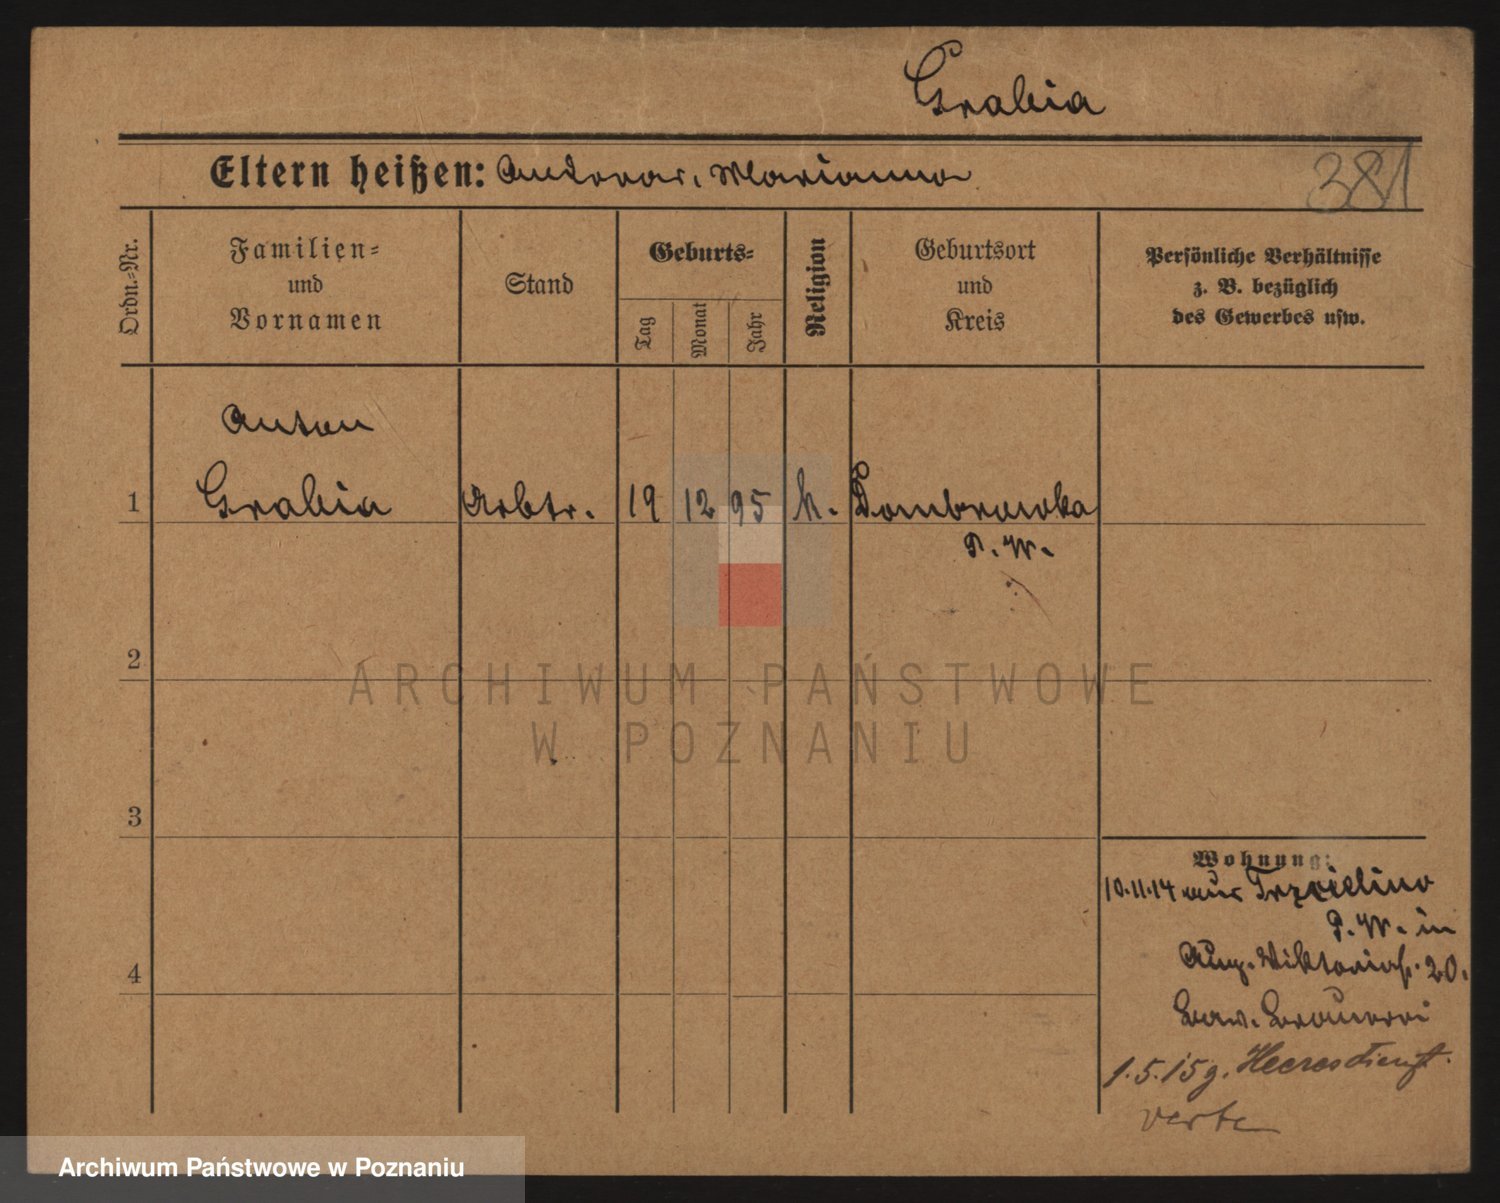 Grabia
Eltern heißen: Andreas, Marianna
381
Ordn.-Nr.
Familien-
und
Vornamen
Stand
Geburts-
Tag
Monat
Jahr
Religion
Geburtsort
und
Kreis
Persönliche Verhältnisse
z. B. bezüglich
des Gewerbes usw.
Anton
1 Grabia Arbtr. 19 12 95 k. Dombrowka
P. W.
2
3
4
Wohnung:
10.11.14 aus Trzcielino
P. W. in
Aug. Viktoriastr. 20.
Bav. Brauerei
1.5.15 g. Heeresdienst.
verte
ARCHIWUM PAŃSTWOWE
W POZNANIU
Archiwum Państwowe w Poznaniu